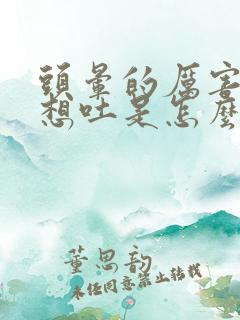 頭暈的厲害
想吐是怎麼
董思韵
未经同意禁止转载